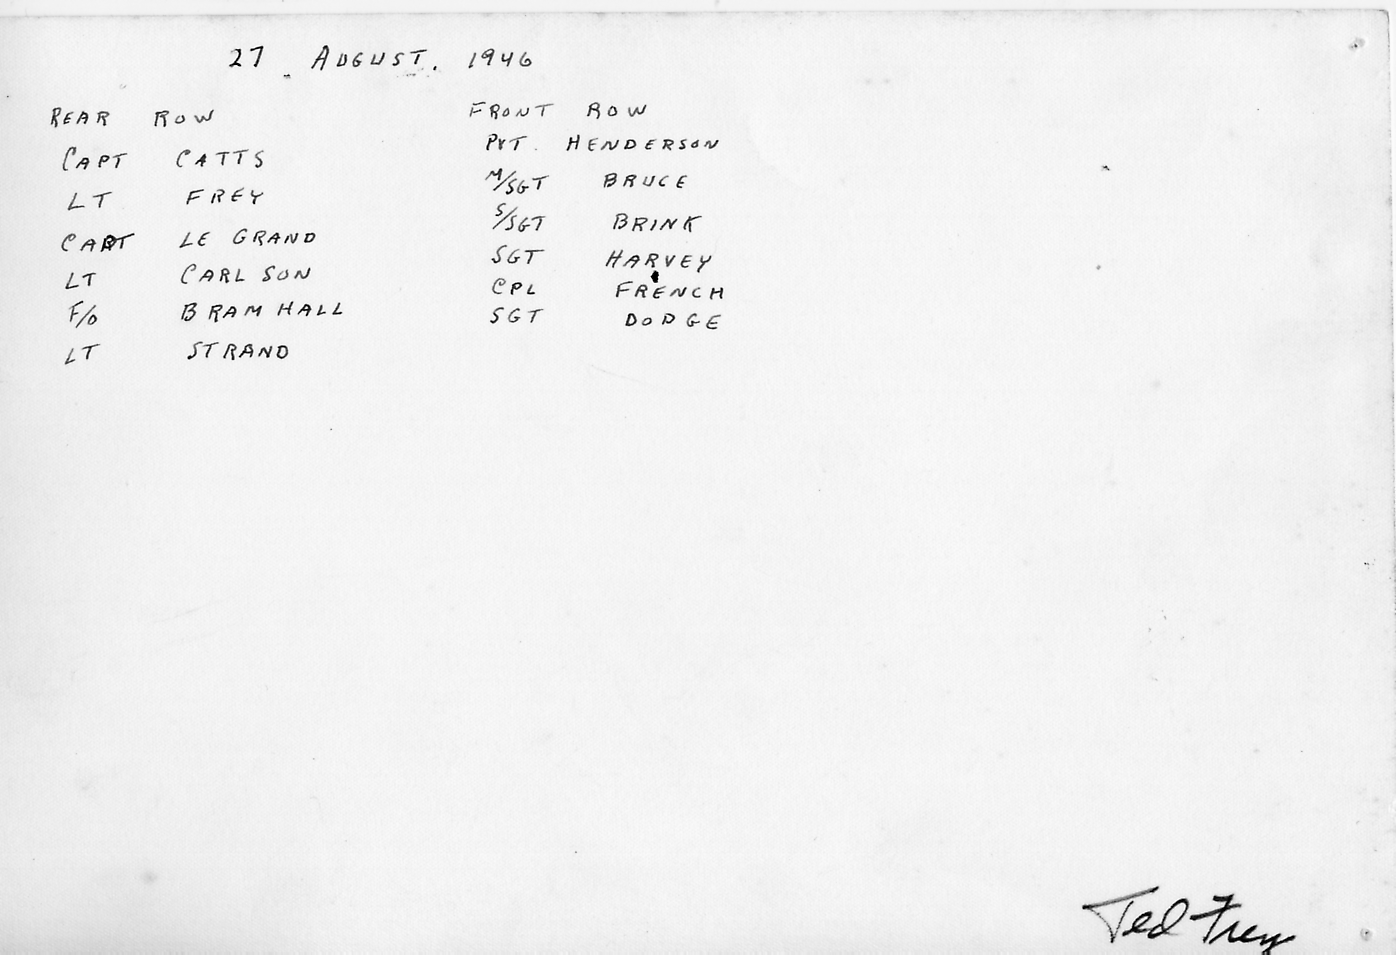 27 AUGUST. 1946
REAR ROW
CAPT CATTS
LT FREY
CAPT LE GRAND
LT CARLSON
F/O BRAMHALL
LT STRAND
FRONT ROW
PVT. HENDERSON
M/SGT BRUCE
S/SGT BRINK
SGT HARVEY
CPL FRENCH
SGT DODGE
Ted Frey